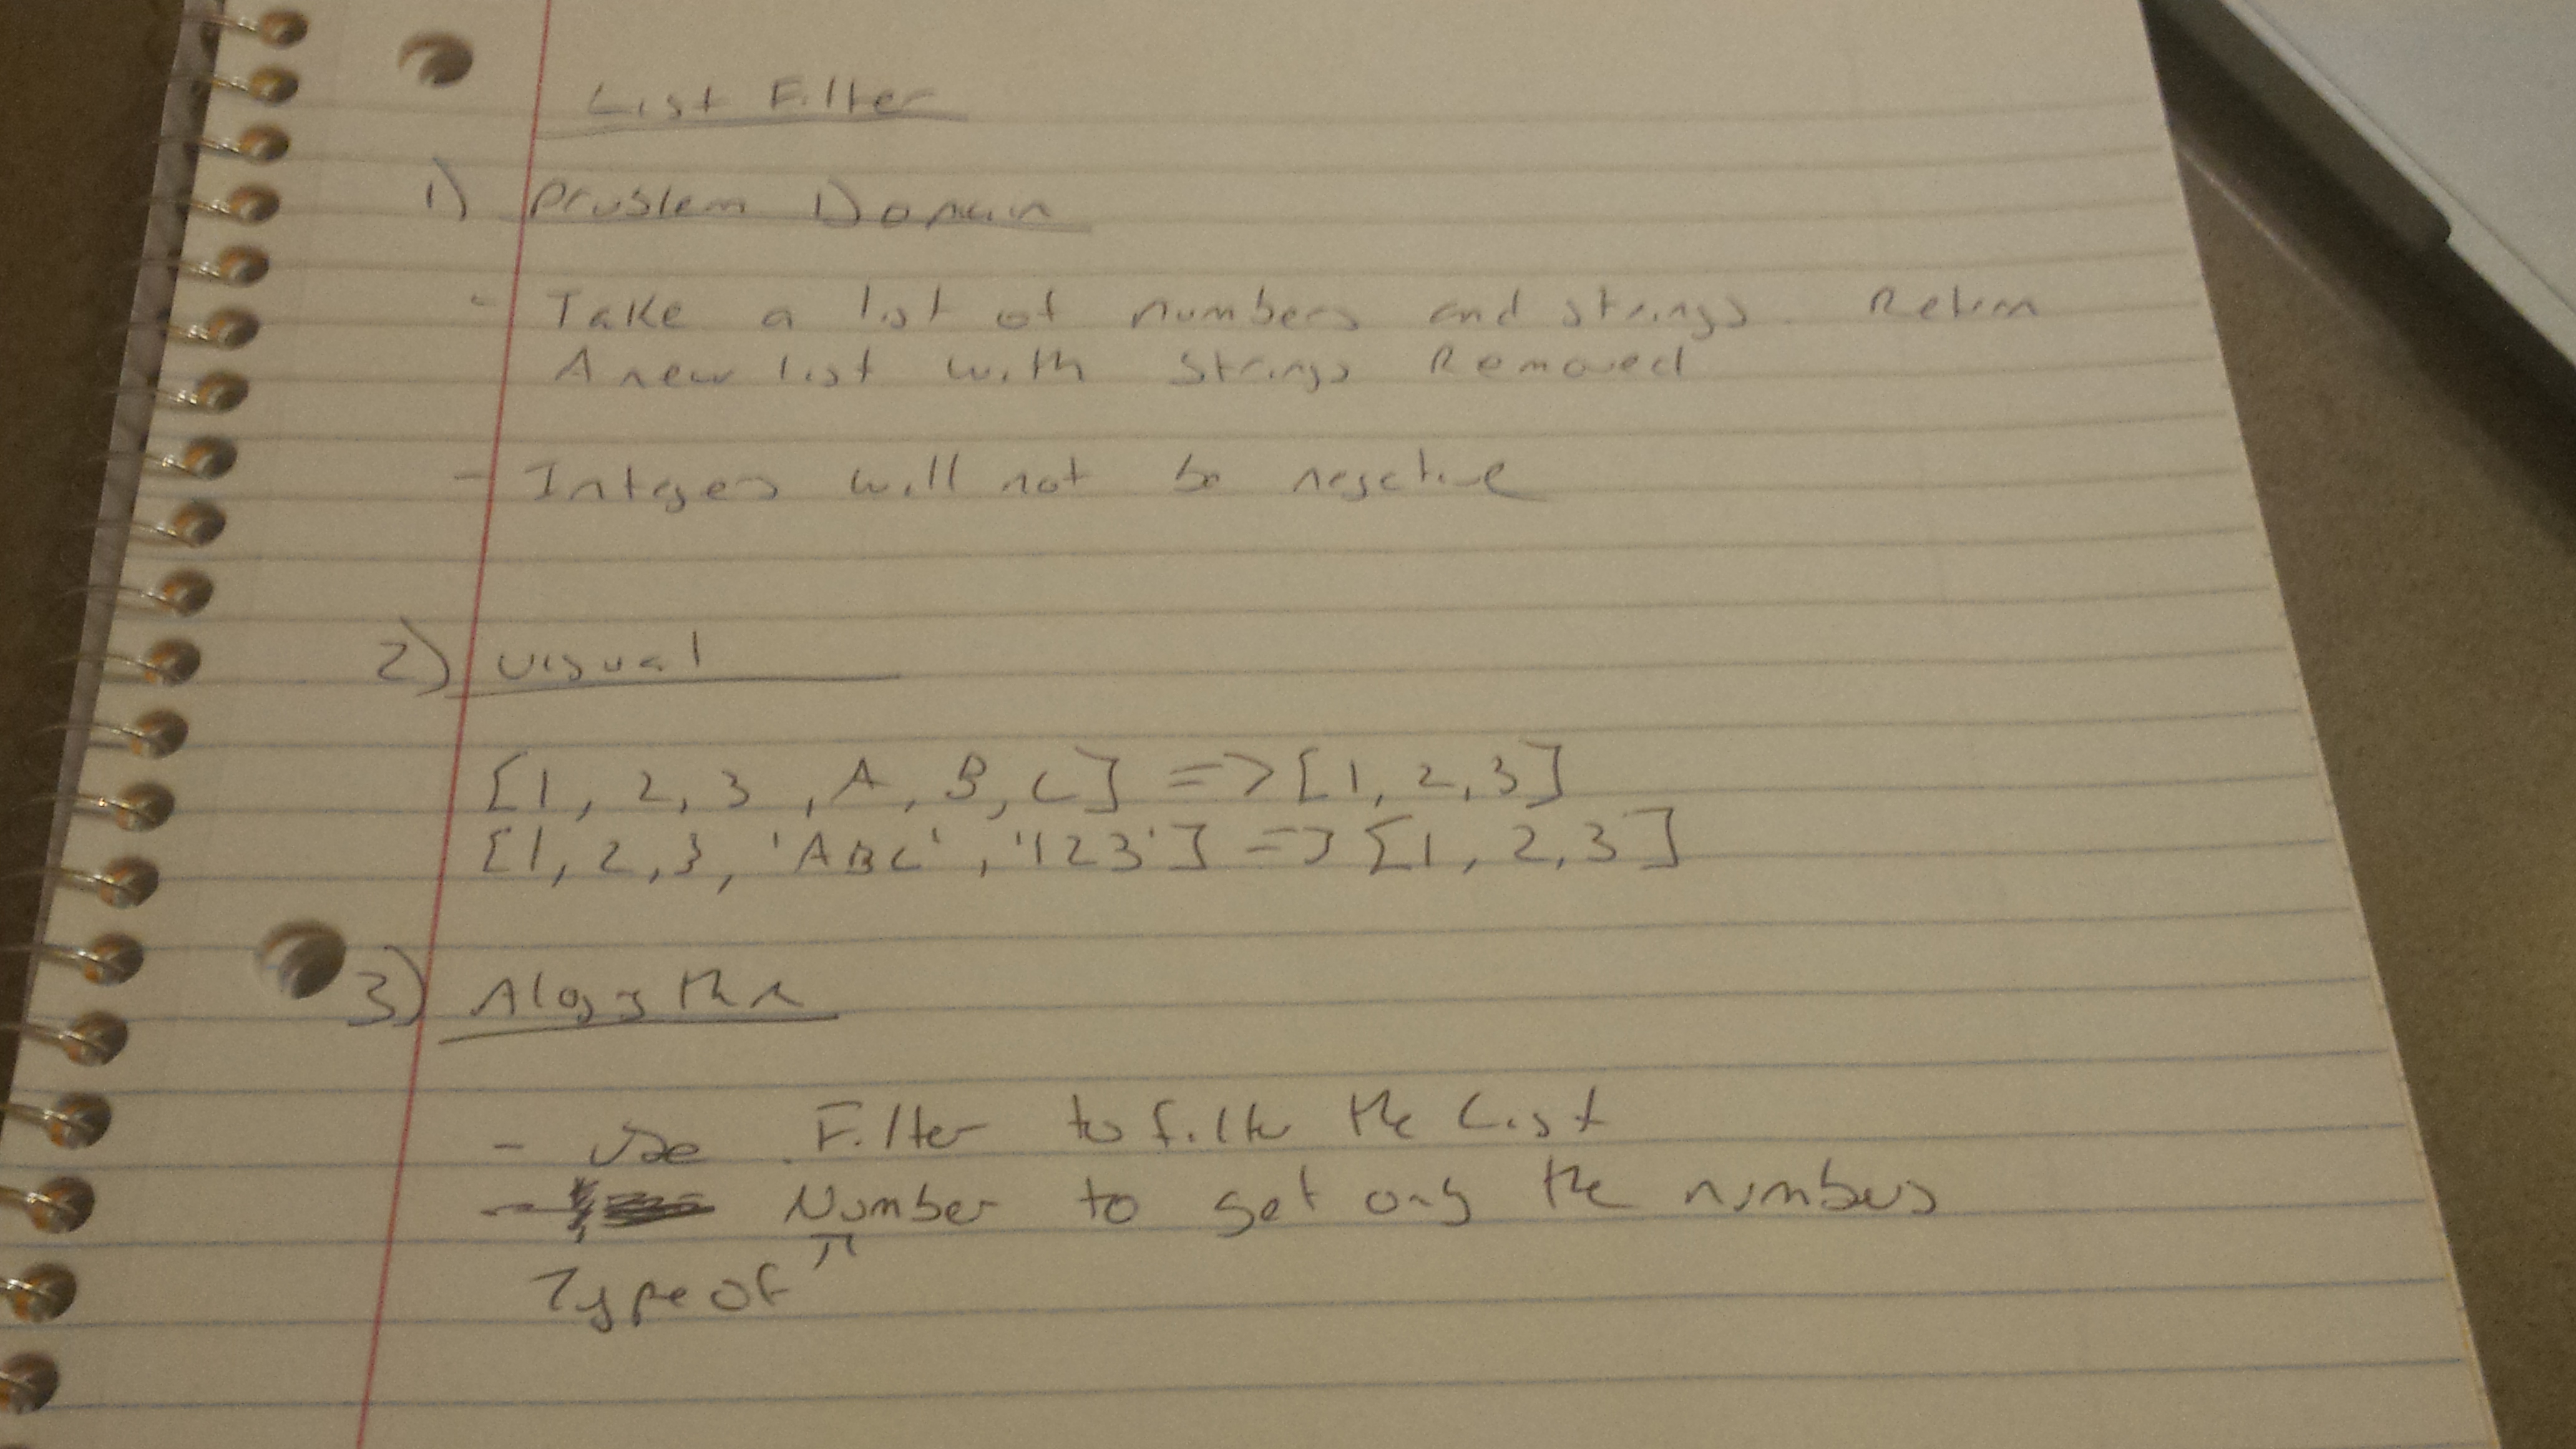 List Filter
1) Problem Domain
- Take a list of numbers and strings. Return
A new list with strings Removed
- Integers will not be negative
2) visual
[1, 2, 3, A, B, C] => [1, 2, 3]
[1, 2, 3, 'ABC', '123'] => [1, 2, 3]
3) Algorithm
- Use .Filter to filter the List
- Number to get only the numbers
Type of